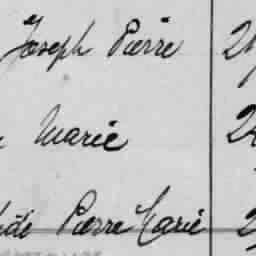 Joseph Pierre 2
Marie 2
Pierre Marie 2